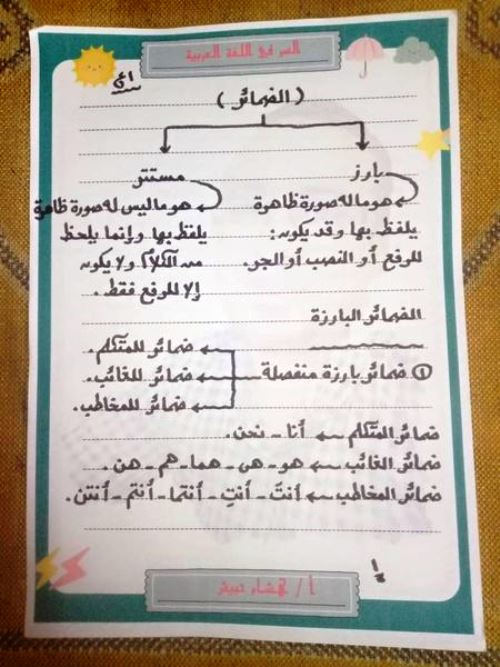 السر في اللغة العربية
(الضمائر)
بارز
مستتر
هو ما له صورة ظاهرة
يلفظ بها وقد يكون:
للرفع أو النصب أو الجر.
هو ما ليس له صورة ظاهرة
يلفظ بها وإنما يلحظ
من الكلام ولا يكون
إلا للرفع فقط.
الضمائر البارزة
① ضمائر بارزة منفصلة
ضمائر للمتكلم.
ضمائر للغائب.
ضمائر للمخاطب.
ضمائر المتكلم ← أنا - نحن.
ضمائر الغائب ← هو - هى - هما - هم - هن.
ضمائر المخاطب ← أنتَ - أنتِ - أنتما - أنتم - أنتن.
أ / هشام